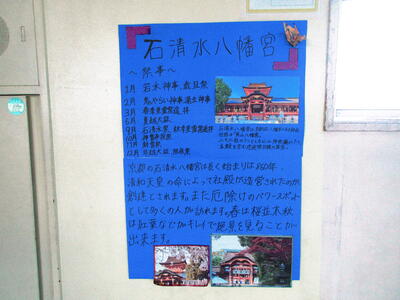 石清水八幡宮
〜祭事〜
1月 若水神事、歳旦祭
2月 鬼やらい神事、湯立神事
3月 春季皇霊祭遥拝
6月 夏越大祓
9月 石清水祭、秋季皇霊祭遥拝
10月
11月 献茶祭
12月 年越大祓、除夜祭
京都の石清水八幡宮は長く始まりは860年、
清和天皇の命によって社殿が造営されたのが
創建とされます。また厄除けのパワースポット
として多くの人が訪れます。春は桜並木、秋
は紅葉などがキレイで絶景を見ることが
出来ます。